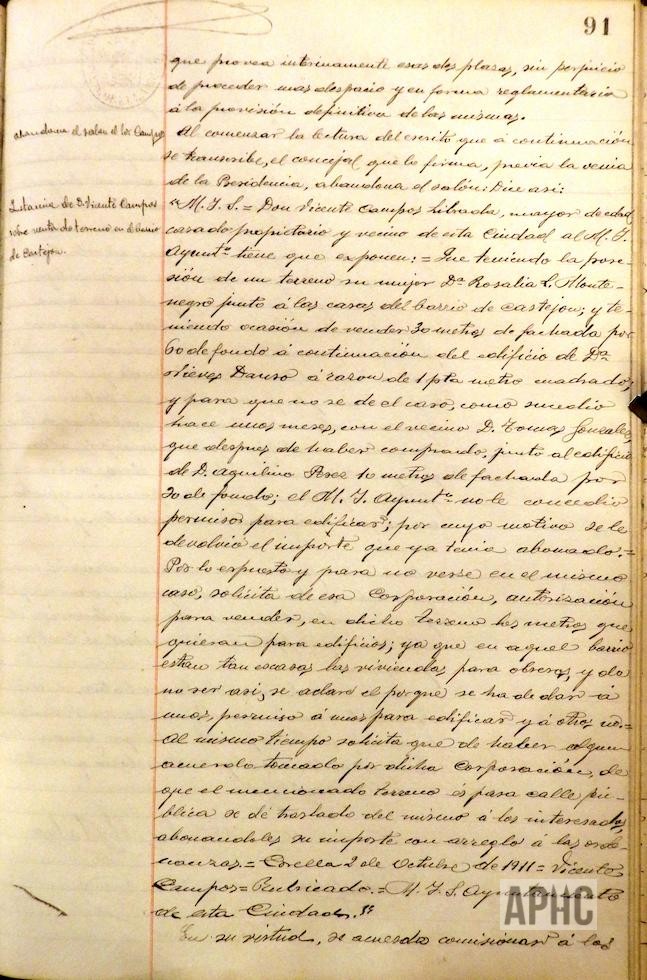 91
que provea interinamente esas dos plazas, sin perjuicio
de proceder mas despacio y en forma reglamentaria
á la provisión definitiva de las mismas.
abandona el salon el Sor Campos
Al comenzar la lectura del escrito que á continuación
se transcribe, el concejal que lo firma, previa la venia
de la Presidencia, abandona el salón: Dice asi:
Instancia de D. Vicente Campos
sobre venta de terreno en el barrio
de Castejon.
"M. I. S. = Don Vicente Campos Librada, mayor de edad
casado propietario y vecino de esta Ciudad al M. I.
Ayuntº tiene que exponer: = Que teniendo la pose-
sión de un terreno su mujer Dª Rosalia S. Monte-
negro junto á las casas del barrio de Castejon; y te-
niendo ocasión de vender 30 metros de fachada por
60 de fondo á continuación del edificio de Dª
Nieves Dauso á razon de 1 pta metro cuadrado;
y para que no se dé el caso, como sucedio
hace unos meses, con el vecino D. Tomas Gonzalez,
que despues de haber comprado, junto al edificio
de D. Aquilino Perez 10 metros de fachada por
30 de fondo; el M. I. Ayuntº no le concedio
permiso para edificar; por cuyo motivo se le
devolvió el importe que ya tenia abonado. =
Por lo expuesto y para no verse en el mismo
caso, solicita de esa Corporación, autorización
para vender, en dicho terreno los metros que
quieran para edificios; ya que en aquel barrio
estan tan escasas las viviendas para obreros, y de
no ser asi, se aclare el porque se ha de dar á
unos, permiso á unos para edificar y á otros no. =
Al mismo tiempo solicita que de haber algun
acuerdo tomado por dicha Corporación, de
que el mencionado terreno es para calle pú-
blica se dé traslado del mismo á los interesados,
abonandoles su importe con arreglo á las orde-
nanzas. = Corella 2 de Octubre de 1911 = Vicente
Campos = Rubricado. = M. I. S. Ayuntamiento
de esta Ciudad."
En su virtud, se acuerda comisionar á los
APHC